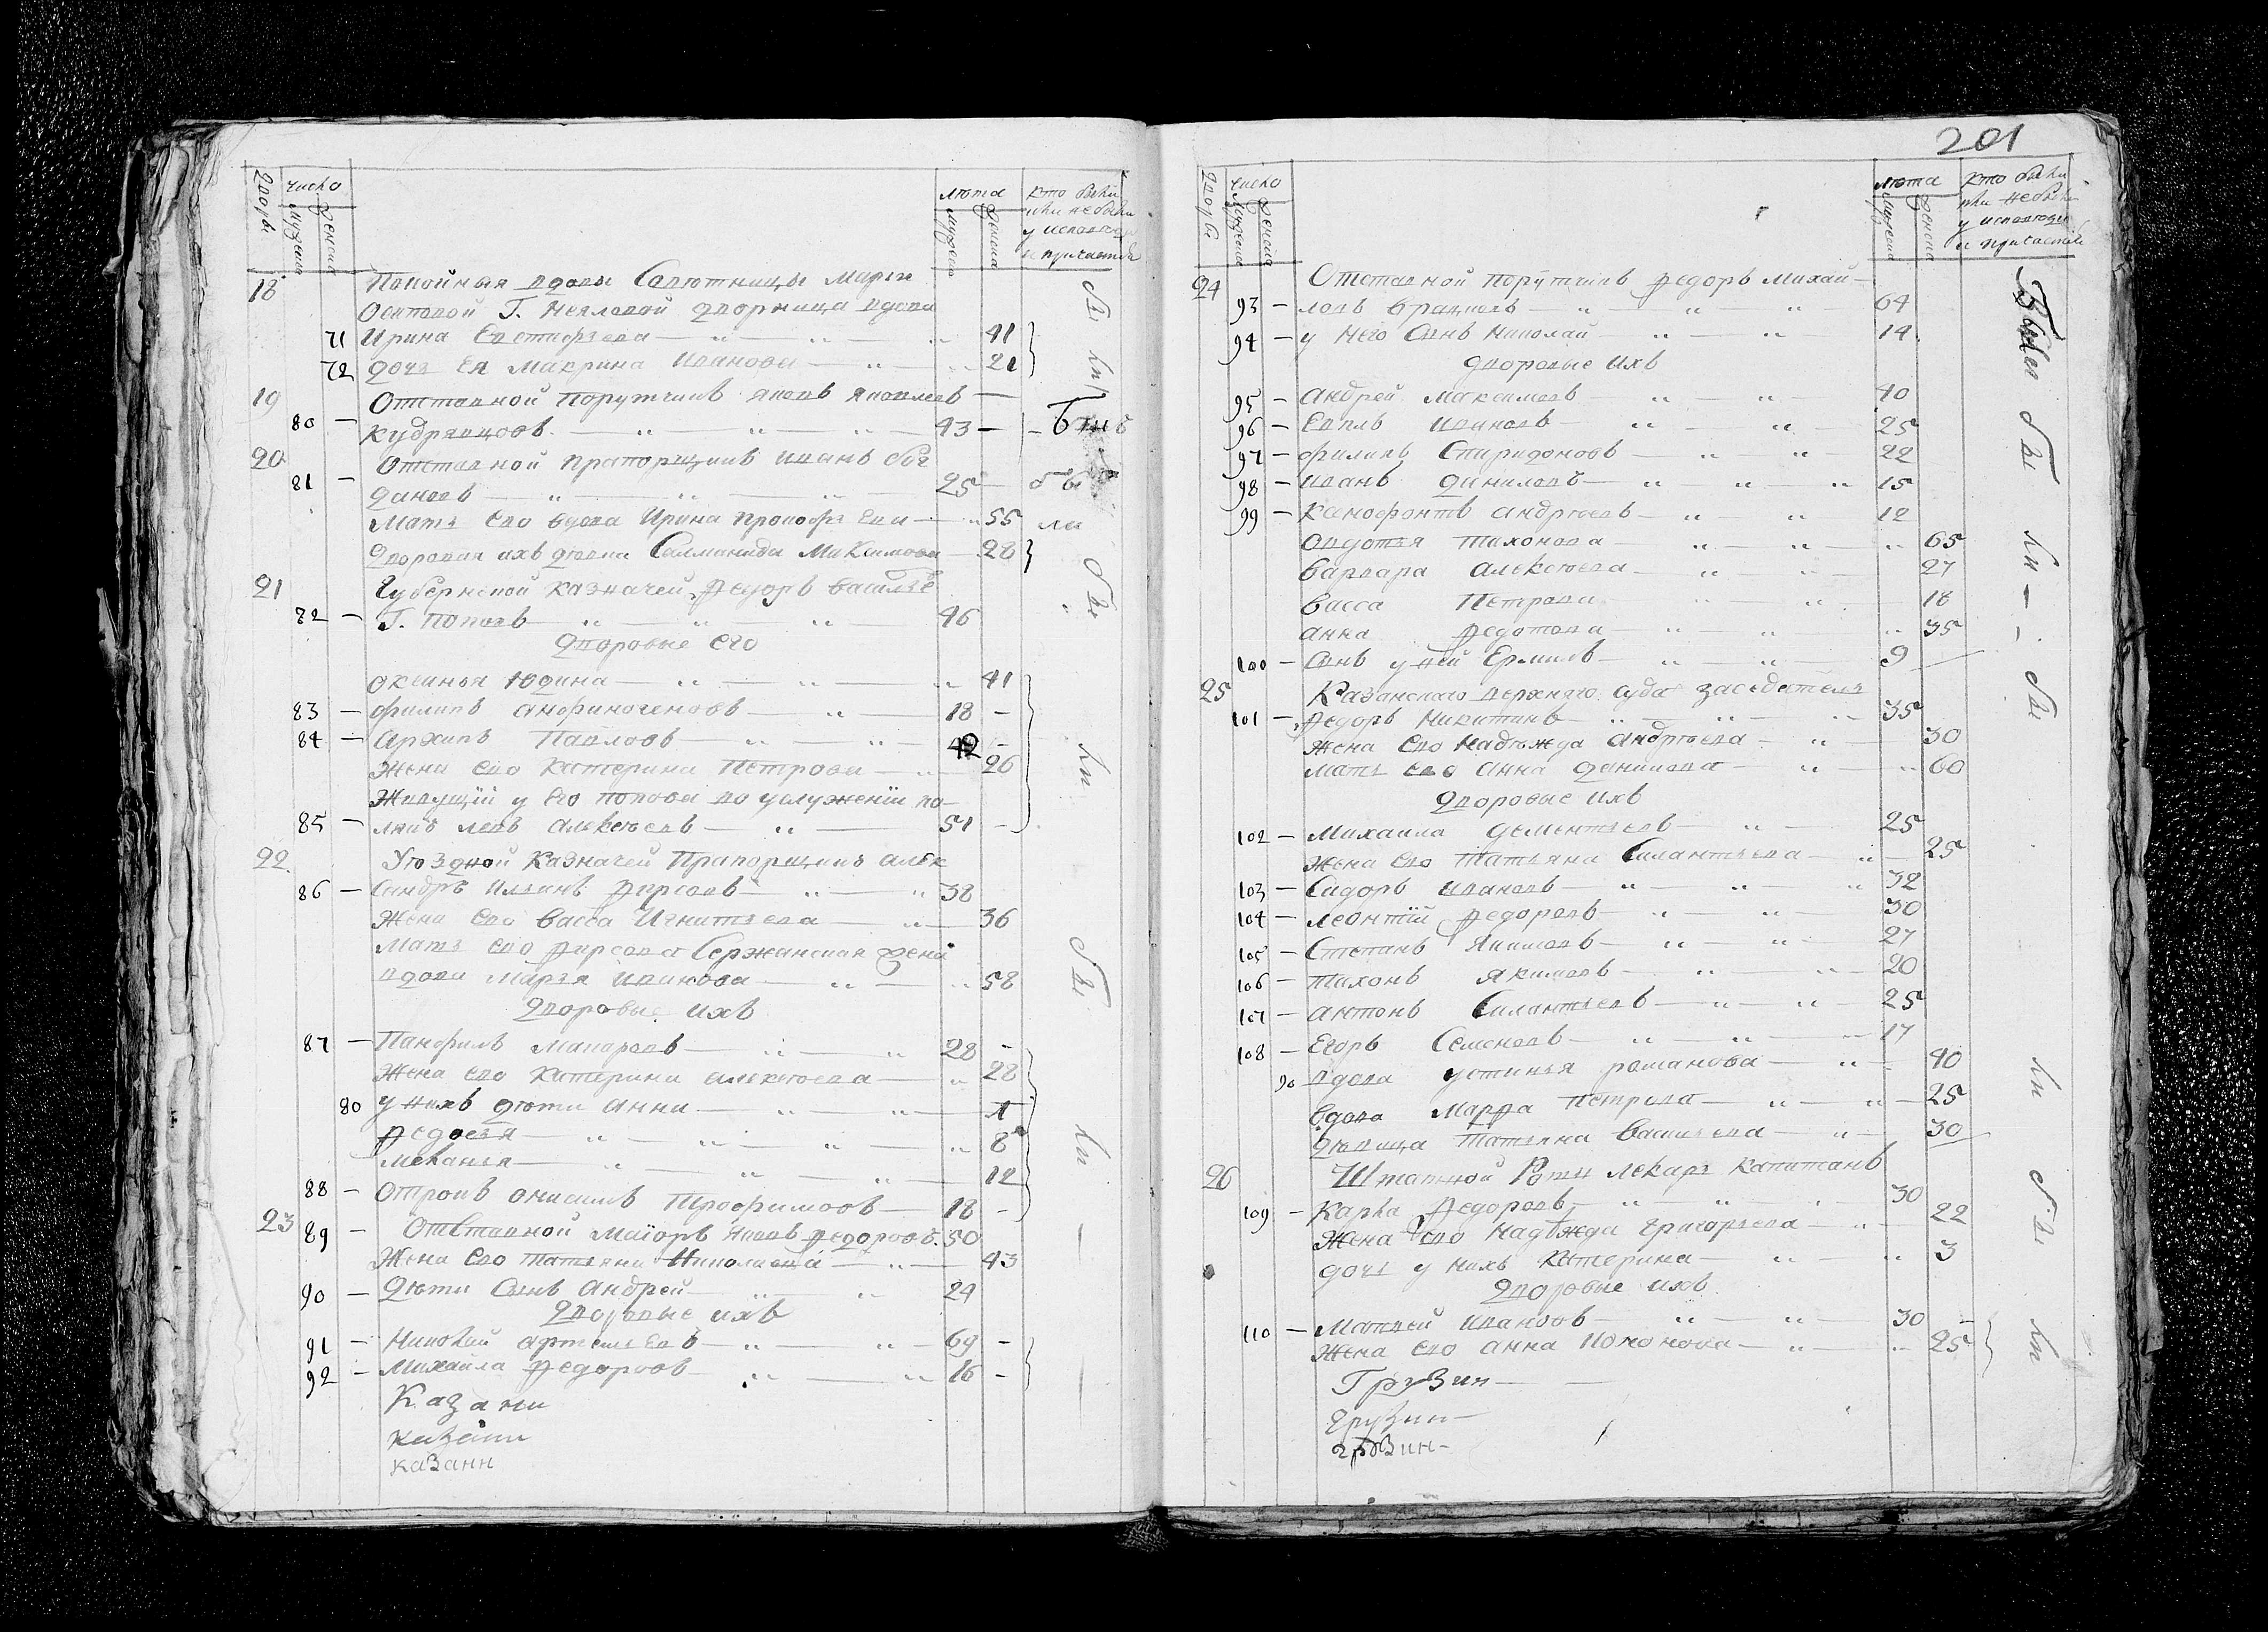 дворы
число
мужеска
женска
лѣта
мужеска
женска
кто были
или не были
у исповеди
и причастия
18 Покойныя вдовы Советницы Марьи
Осиповой Г. Нееловой дворница вдова
71 Ирина Евстифѣева 41
72 дочь Ея Макрина Иванова 21
19 Отставной Порутчикъ Яковъ Яковлевъ
80 Кудрявцовъ 43
20 Отставной Прапорщикъ Иванъ Бог
81 дановъ 25
Мать Ево вдова Ирина Прокофь Ева 55
Дворовая ихъ девка Соломанида Максимова 28
21 Губернской Казначей Ѳедоръ Василье
82 Г. Поповъ 46
Дворовые Его
Оксинья Юдина 41
83 Филипъ Анфиногеновъ 18
84 Архипъ Павловъ 42
Жена Ево Катерина Петрова 26
Живущий у Его Попова во услужении по
85 лякъ левъ Алексеевъ 51
22 Уѣздной Казначей Прапорщикъ Алек
86 сандръ Ильинъ Ѳирсовъ 38
Жена Ево Васса Игнатьева 36
Мать Ево Ѳирсова Сержанская жена
вдова Марья Иванова 58
Дворовые ихъ
87 Панфилъ Макаровъ 28
Жена Ево Катерина Алексеева 28
80 у нихъ дѣти Анна 1
Ѳедосья 8
Меланья 12
88 Отрокъ Онисимъ Трофимовъ 18
23 89 Отставной Маіоръ Ѳедоровъ 50
Жена Ево Татьяна Николаева 43
90 Дѣти Сынъ Андрей 24
Дворовые ихъ
91 Николай Артемьевъ 69
92 Михаила Ѳедоровъ 16
Казани
казани
казанн
201
дворы
число
мужеска
женска
лѣта
мужеска
женска
кто были
или не были
у исповеди
и причастия
24 Отставной Порутчикъ Ѳедоръ Михай
93 ловъ 64
94 у Него Сынъ Николай 14
дворовые ихъ
95 Андрей Максимовъ 40
96 Ивановъ 25
97 Филипъ Спиридоновъ 22
98 Иванъ Даниловъ 15
99 Канофонтъ Андреевъ 12
Овдотья Тихонова 65
Варвара Алексеева 27
Васса Петрова 18
Анна Ѳедотова 35
100 Сынъ у ней Ермилъ 9
25 Казанскаго верхняго суда заседатель
101 Ѳедоръ Никитинъ 35
Жена Ево Надежда Андреева 30
мать Ево Анна Данилова 60
Дворовые ихъ
102 Михаила Дементьевъ 25
Жена Ево Татьяна Силантьева 25
103 Сидоръ Ивановъ 32
104 Леонтий Ѳедоровъ 30
105 Степанъ Якимовъ 27
106 Тихонъ Якимовъ 20
107 Антонъ Силантьевъ 25
108 Егоръ Семеновъ 17
90 вдова Устинья Романова 40
вдова Марѳа Петрова 25
девица Татьяна Васильева 30
26 Штатной Роты лекарь Капитанъ
109 Карла Ѳедоровъ 30
Жена Ево Надѣжда Григорьева 22
дочь у нихъ Катерина 3
Дворовые ихъ
110 Матвей Ивановъ 30
Жена Ево Анна 25
Грузин
Грузин